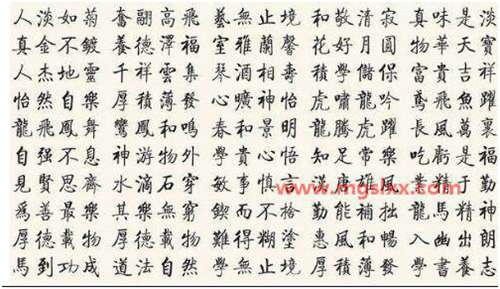 人淡如菊 奮翮高飛 藝無止境 和敬清寂 真味是淡
真金不鍍 養德澤福 室雅蘭馨 花好月圓 物華天寶
人杰地靈 千祥雲集 琴酒相壽 學儲保 富貴吉祥
怡然自樂 厚積薄發 曠神怡 虎嘯龍吟 鳶飛魚躍
龍飛鳳舞 鸞鳳和鳴 春和景明 龍騰虎躍 長風萬裏
自强不息 神游物外 學貴心悟 知足常樂 吃虧是福
見賢思齊 水滴石穿 敏事慎言 漢唐雄風 業精于勤
爲善最樂 其樂無窮 鍥而不捨 勤能補拙 龍馬精神
厚德載物 厚德載物 難得糊塗 惠風和暢 入幽出朗
馬到功成 道法自然 學無止境 厚積薄發 學書養志
www.mgslxx.com